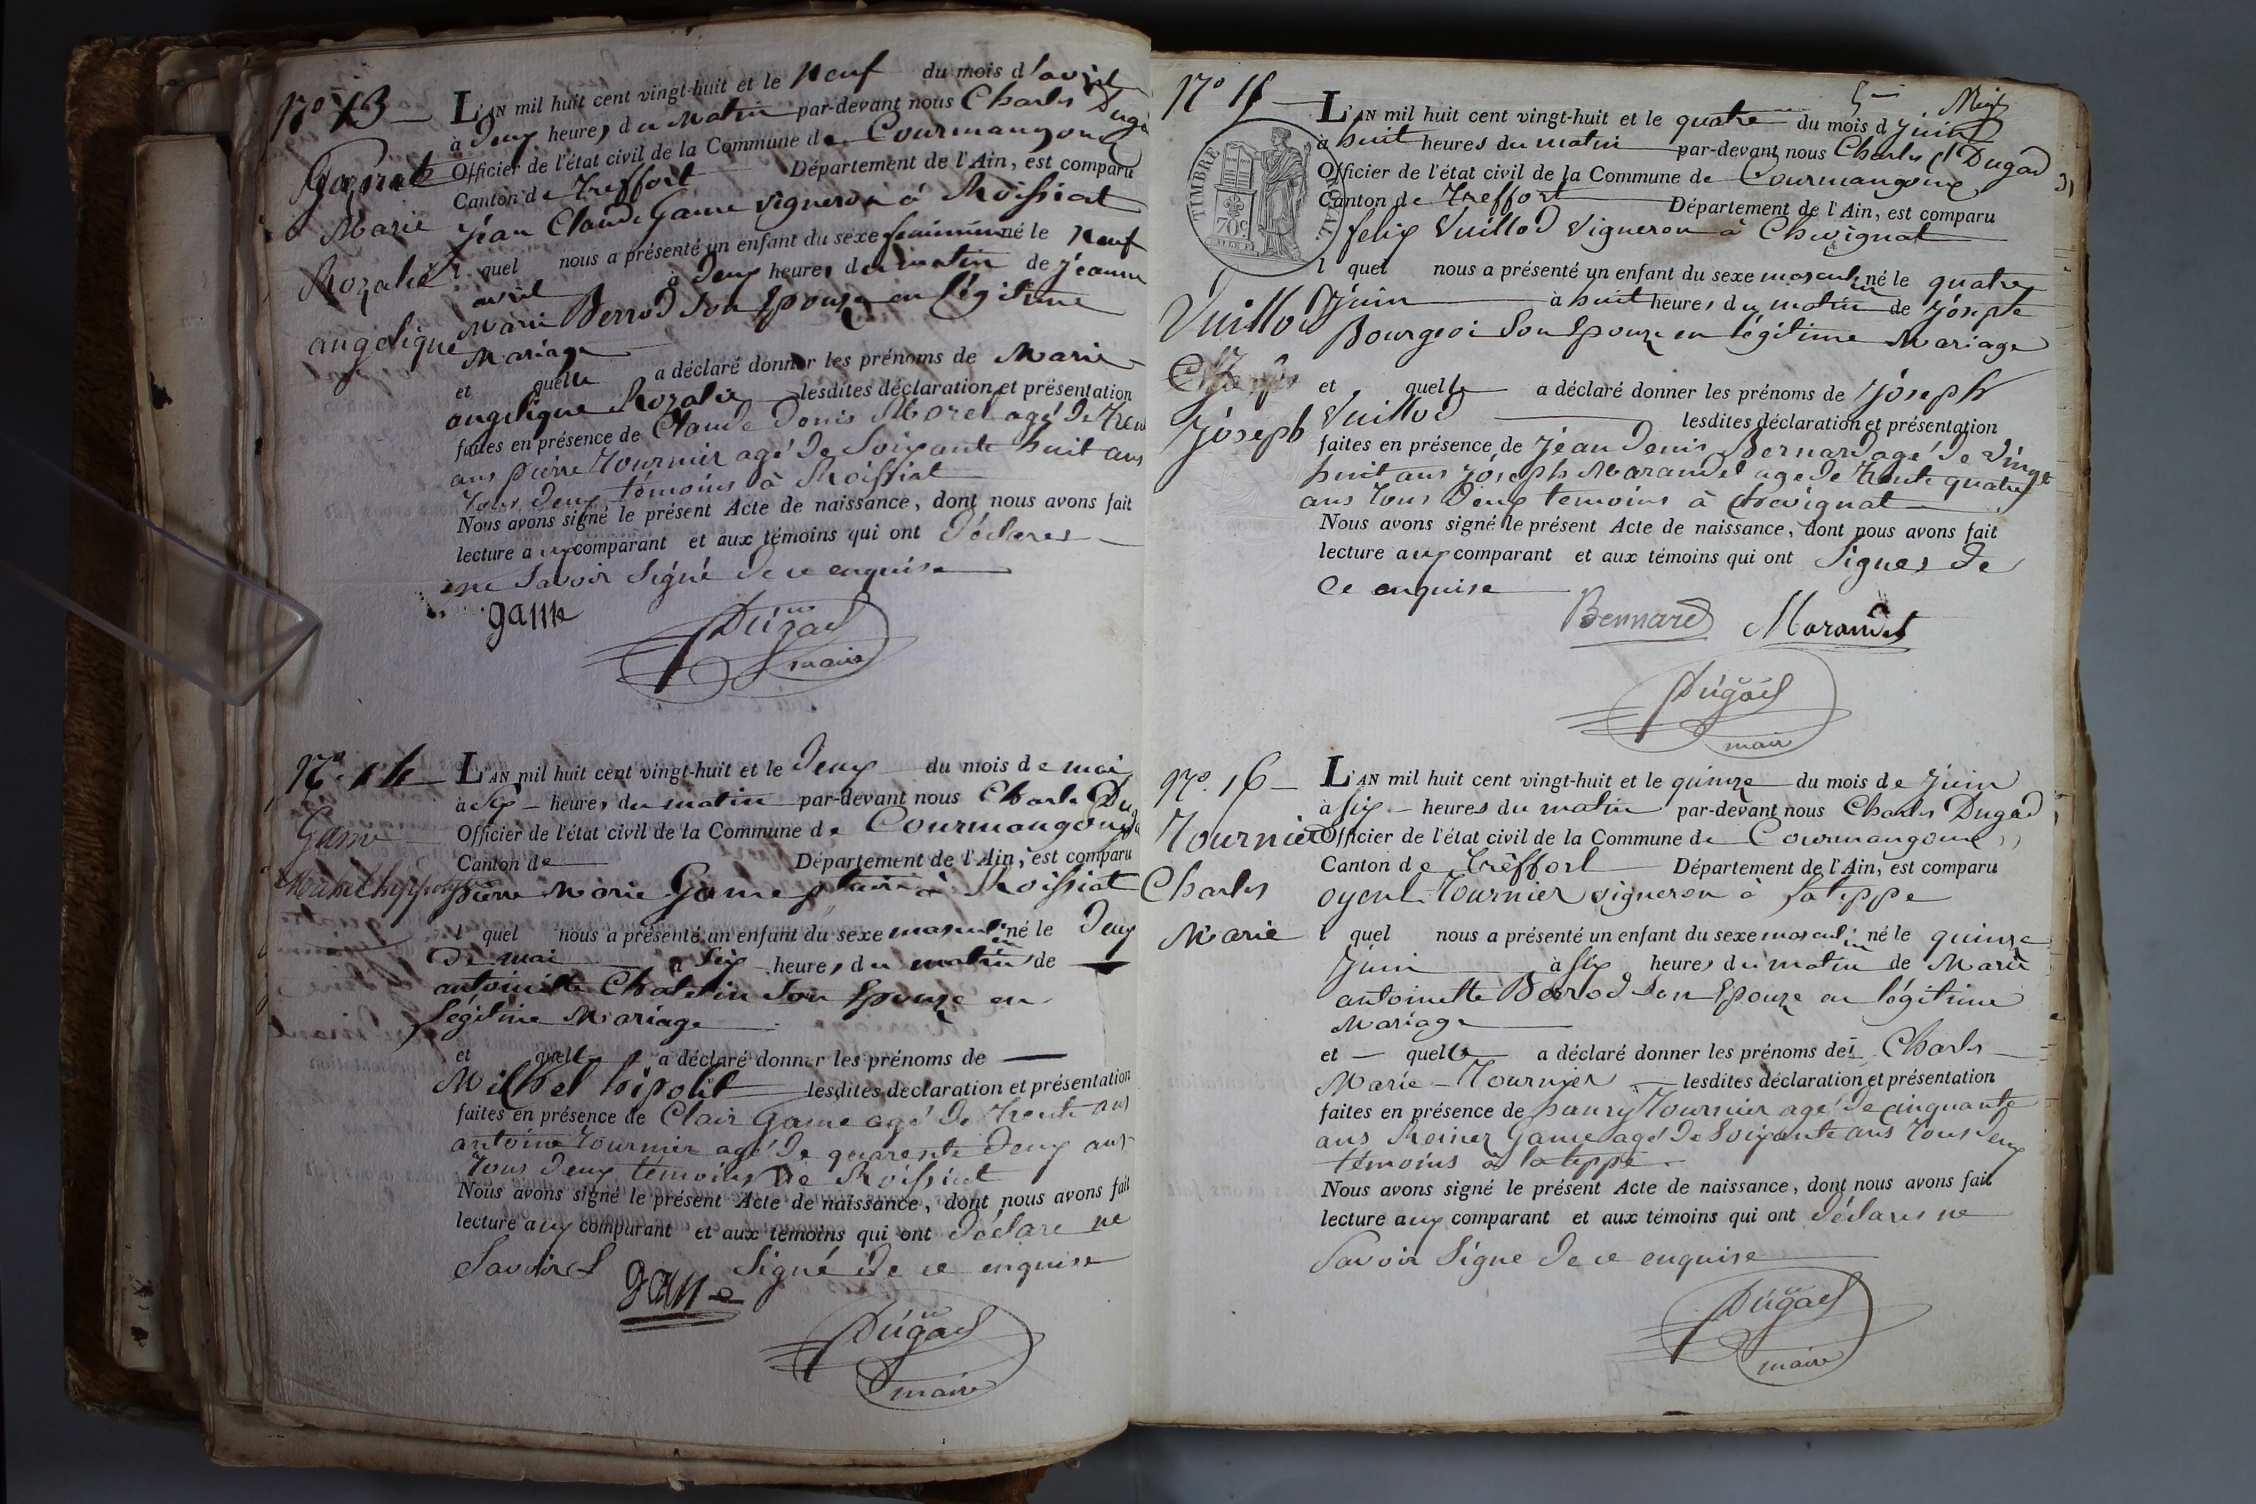 N.° 13
Marie
Rozalie
angelique
L'AN mil huit cent vingt-huit et le Neuf du mois d'avril
à deux heures du matin par-devant nous Charles Dugad
Officier de l'état civil de la Commune de Courmangoux
Canton de Treffort Département de l'Ain, est comparu
jéan Claude Game vigneron à Roissiat
l quel nous a présenté un enfant du sexe feminin né le Neuf
avril à deux heures du matin de jéanne
Marie Berrod Son Epouze en légitime
Mariage
et quelle a déclaré donner les prénoms de Marie
angelique Rozalie lesdites déclaration et présentation
faites en présence de Claude denis Morel agé de Trente
ans pierre Tournier agé de Soixante huit ans
Tous deux témoins à Roissiat
Nous avons signé le présent Acte de naissance, dont nous avons fait
lecture aux comparant et aux témoins qui ont déclarer
ne Savoir Signé de ce enquise
game
Dugad
maire
N.° 14
Game
L'AN mil huit cent vingt-huit et le deux du mois de mai
à Six heures du matin par-devant nous Charle Dugad
Officier de l'état civil de la Commune de Courmangoux
Canton de Département de l'Ain, est comparu
pierre Marie Game à Roissiat
l quel nous a présenté un enfant du sexe masculin né le deux
de mai à Six heures du matin de
antoinette Chatelin Son Epouze en
légitime Mariage
et quelle a déclaré donner les prénoms de
Michel hipolit lesdites déclaration et présentation
faites en présence de Clair Game agé de trente ans
antoine Tournier agé de quarente deux ans
Tous deux témoins de Roissiat
Nous avons signé le présent Acte de naissance, dont nous avons fait
lecture aux comparant et aux témoins qui ont déclare ne
Savoir Signé de ce enquise
game
Dugad
maire
N.° 15
TIMBRE ROYAL
70c
Vuillod
Joseph
L'AN mil huit cent vingt-huit et le quatre du mois d juin
à huit heures du matin par-devant nous Charles Dugad
Officier de l'état civil de la Commune de Courmangoux
Canton de Treffort Département de l'Ain, est comparu
felix Vuillod Vigneron à Chevignat
l quel nous a présenté un enfant du sexe masculin né le quatre
juin à huit heures du matin de joséphe
Bourgeoi Son Epouze en légitime Mariage
et quelle a déclaré donner les prénoms de joseph
Vuillod lesdites déclaration et présentation
faites en présence de jéan denis Bernard agé de Vingt
huit ans joseph Marandet age de trente quatre
ans Tous deux temoins à Chevignat
Nous avons signé le présent Acte de naissance, dont nous avons fait
lecture aux comparant et aux témoins qui ont Signer de
ce enquise
Bernnard Marandet
Dugad
maire
N.° 16
Tournier
Charles
Marie
L'AN mil huit cent vingt-huit et le quinze du mois de juin
à Six heures du matin par-devant nous Charles Dugad
Officier de l'état civil de la Commune de Courmangoux
Canton de Tréffort Département de l'Ain, est comparu
oyent Tournier vigneron à la teppe
l quel nous a présenté un enfant du sexe masculin né le quinze
juin à Six heures du matin de Marie
antoinette Berrod Son Epouze en légitime
Mariage
et quelle a déclaré donner les prénoms de Charles
Marie Tournier lesdites déclaration et présentation
faites en présence de hanry Tournier agé de cinquante
ans Reiner Game agé de Soixante ans Tous deux
témoins à la teppe
Nous avons signé le présent Acte de naissance, dont nous avons fait
lecture aux comparant et aux témoins qui ont déclarer ne
Savoir Signe de ce enquise
Dugad
maire